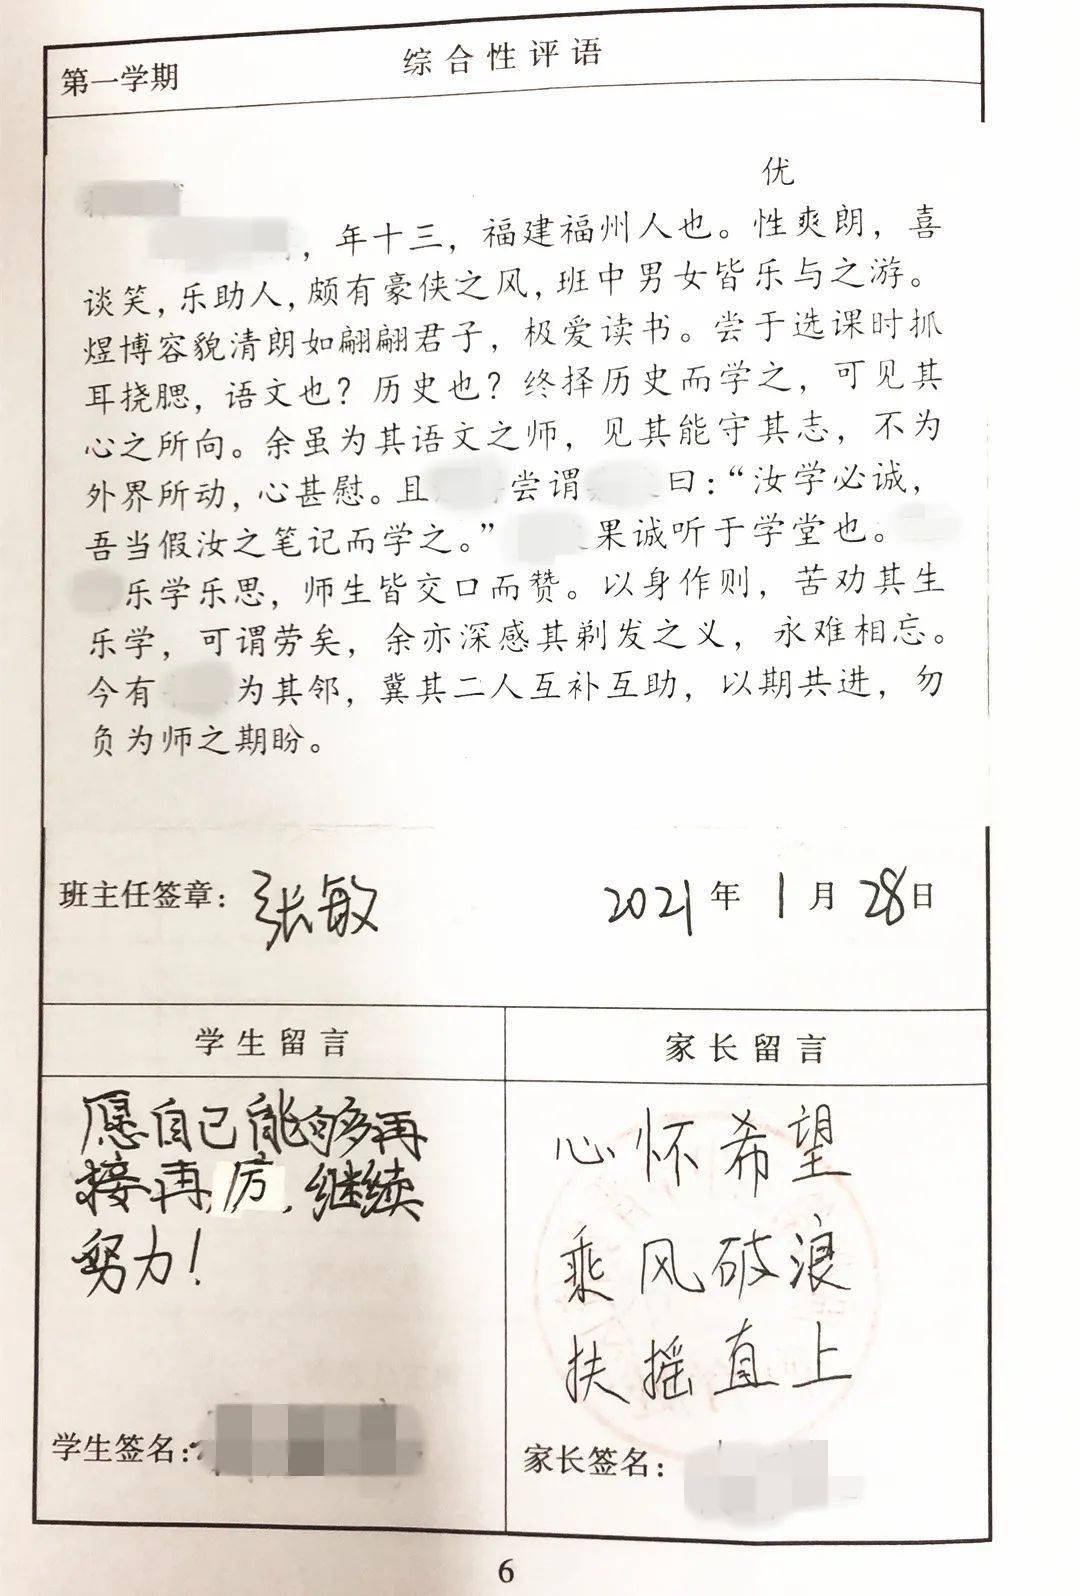 第一学期
综合性评语
优
，年十三，福建福州人也。性爽朗，喜
谈笑，乐助人，颇有豪侠之风，班中男女皆乐与之游。
煜博容貌清朗如翩翩君子，极爱读书。尝于选课时抓
耳挠腮，语文也？历史也？终择历史而学之，可见其
心之所向。余虽为其语文之师，见其能守其志，不为
外界所动，心甚慰。且 尝谓 曰：“汝学必诚，
吾当假汝之笔记而学之。” 果诚听于学堂也。
乐学乐思，师生皆交口而赞。以身作则，苦劝其生
乐学，可谓劳矣，余亦深感其剃发之义，永难相忘。
今有 为其邻，冀其二人互补互助，以期共进，勿
负为师之期盼。
班主任签章：张敏 2021年1月28日
学生留言
愿自己能够再
接再厉，继续
努力！
学生签名：
家长留言
心怀希望
乘风破浪
扶摇直上
家长签名：
6